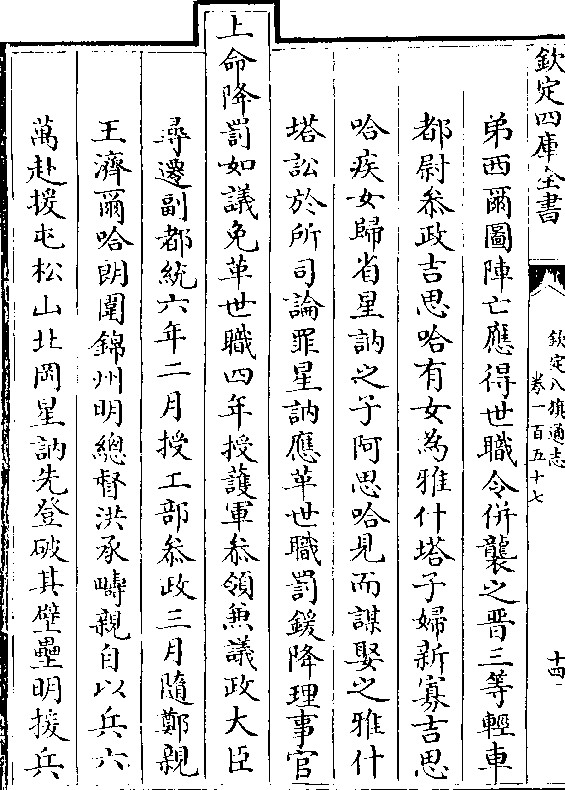 欽定四庫全書
欽定八旗通志
卷一百五十七
十四
弟西爾圖陣亡應得世職令併襲之晋三等輕車
都尉叅政吉思哈有女為雅什塔子婦新寡吉思
哈疾女歸省星訥之子阿思哈見而謀娶之雅什
塔訟於所司論罪星訥應革世職罰鍰降理事官
上命降罰如議免革世職四年授護軍叅領兼議政大臣
尋遷副都統六年二月授工部叅政三月隨鄭親
王濟爾哈朗圍錦州明總督洪承疇親自以兵六
萬赴援屯松山北岡星訥先登破其壁壘明援兵